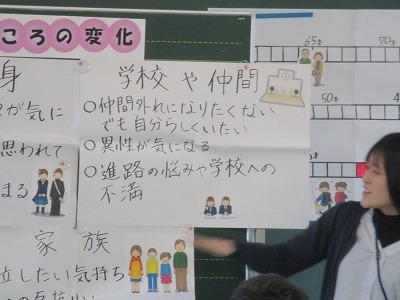 ころの変化
身
が気に
思われて
まる
学校や仲間
○仲間外れになりたくない
でも自分らしくいたい
○異性が気になる
○進路の悩みや学校への
不満
家族
立したい気持ち
65才
70才
50才